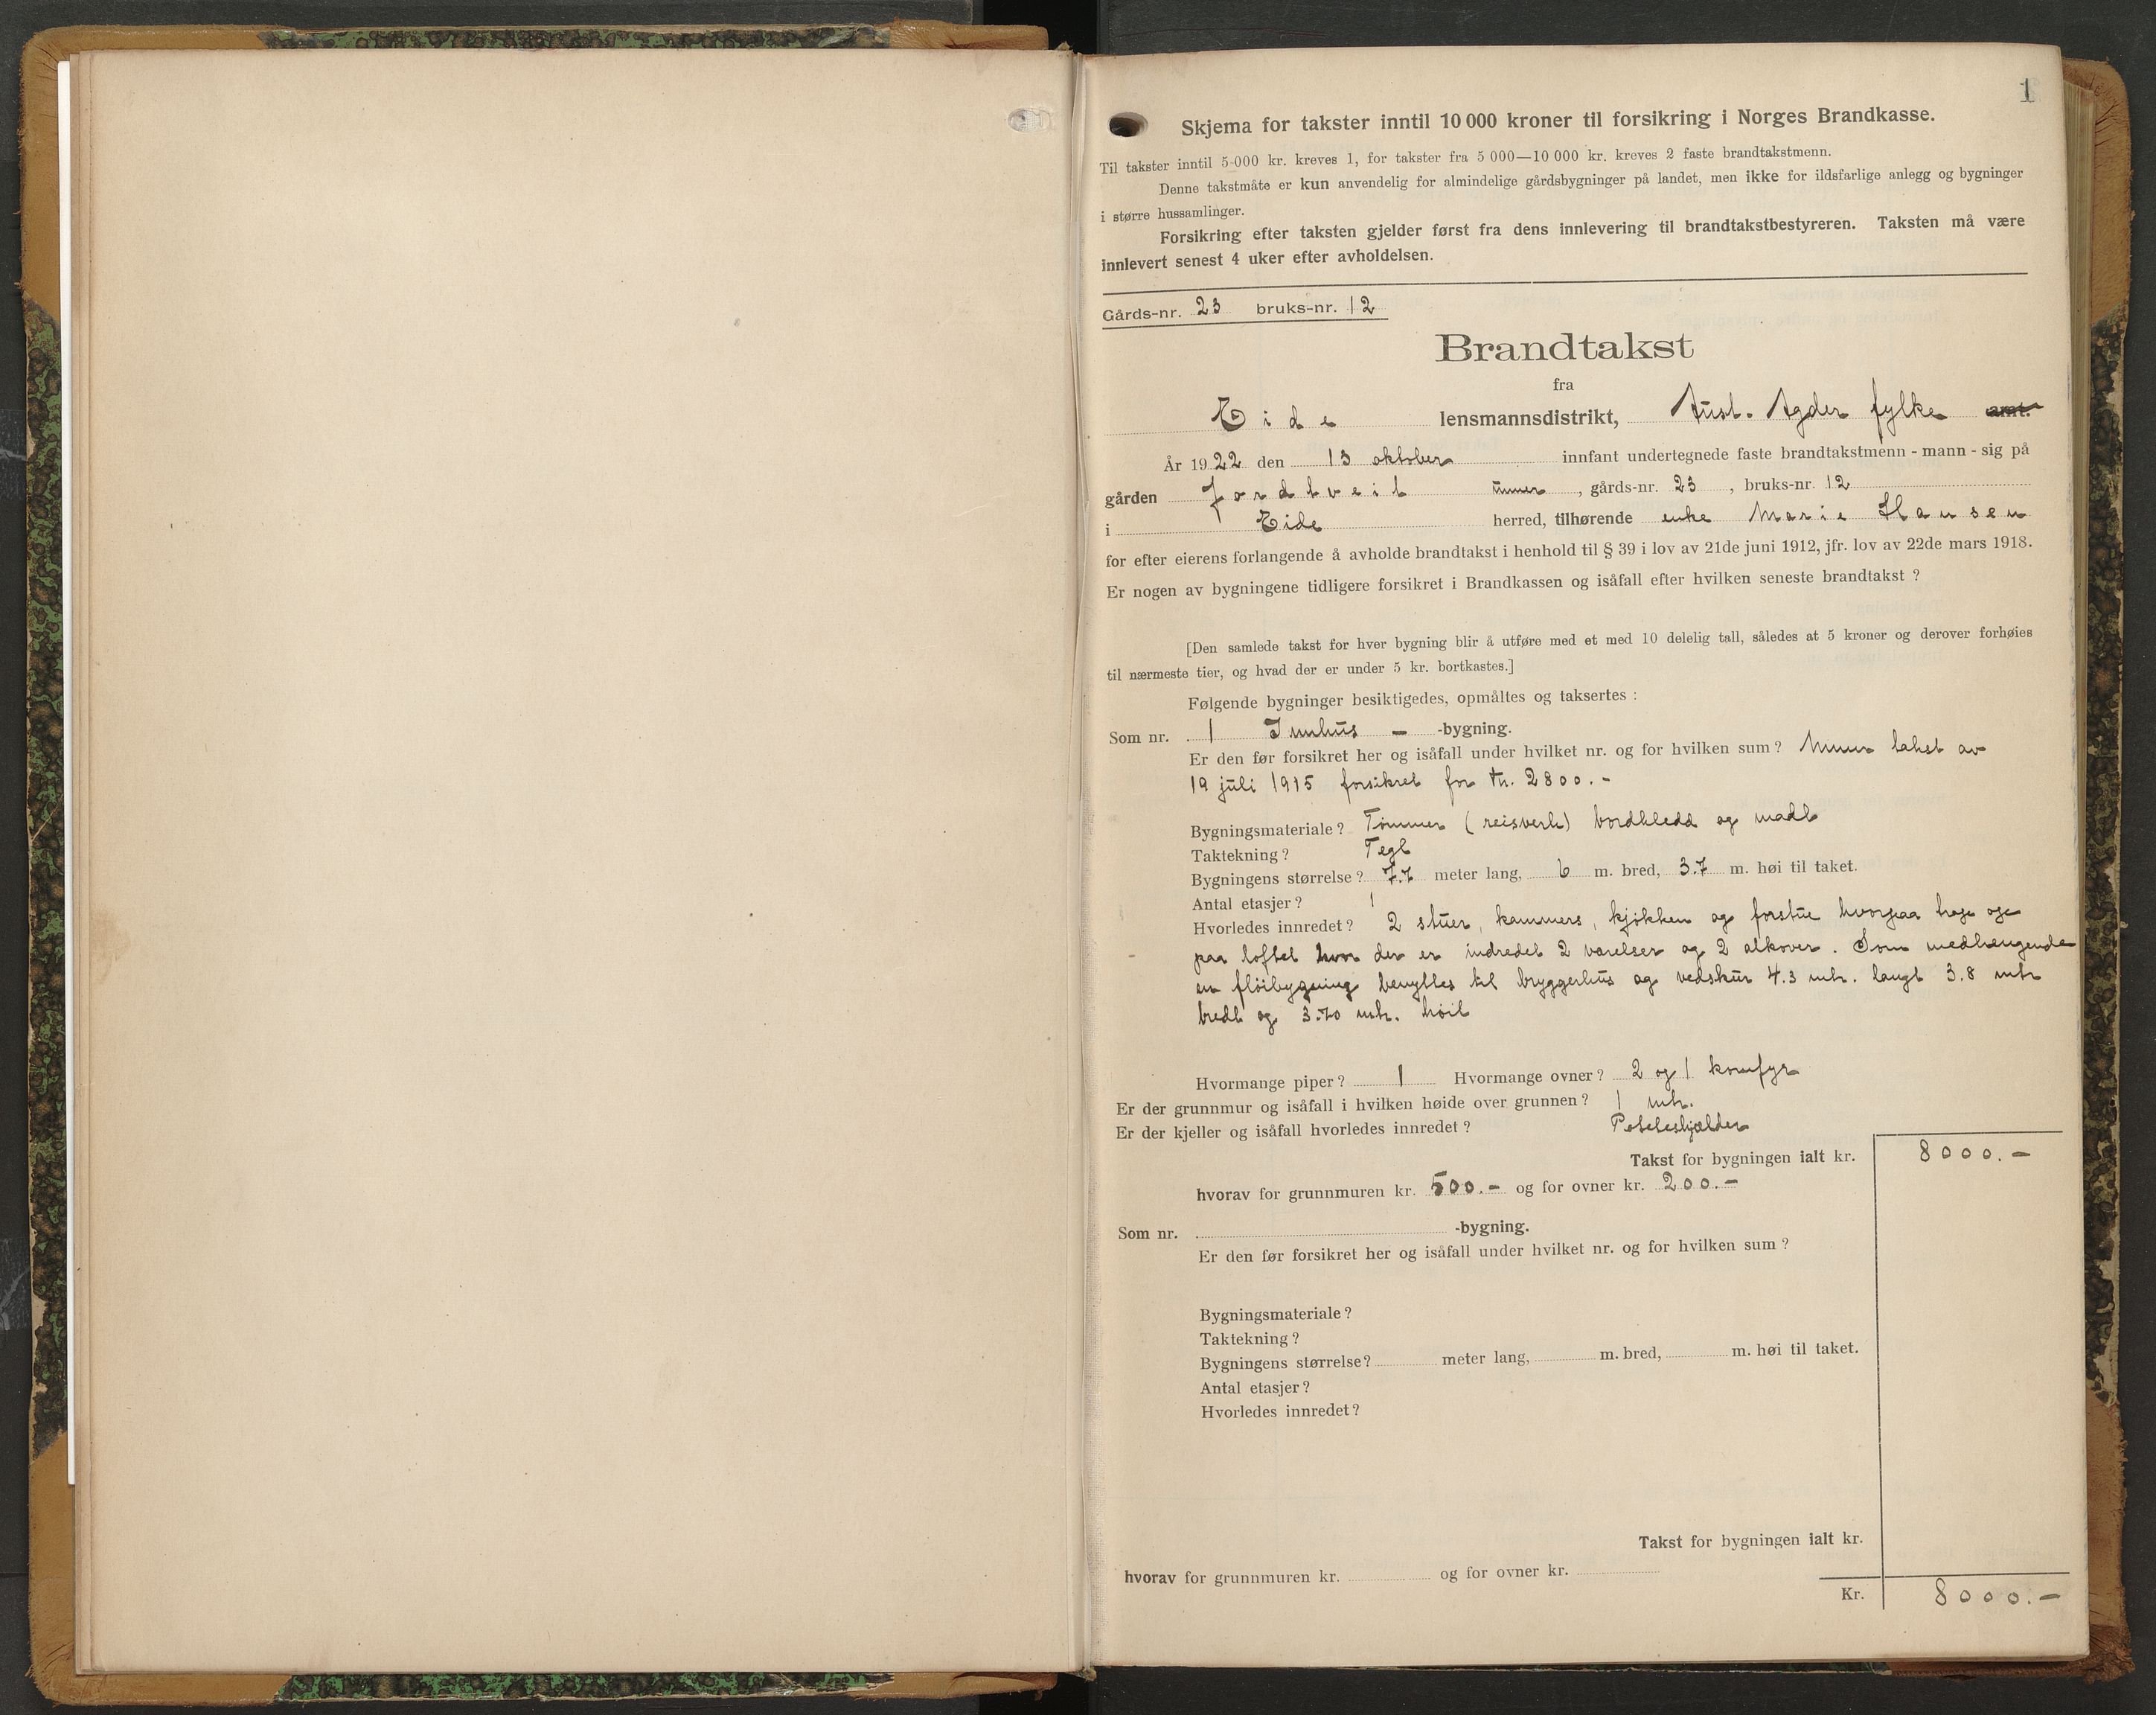 1
Skjema for takster inntil 10 000 kroner til forsikring i Norges Brandkasse.
Til takster inntil 5 000 kr. kreves 1, for takster fra 5 000—10 000 kr. kreves 2 faste brandtakstmenn.
Denne takstmåte er kun anvendelig for almindelige gårdsbygninger på landet, men ikke for ildsfarlige anlegg og bygninger
i større hussamlinger.
Forsikring efter taksten gjelder først fra dens innlevering til brandtakstbestyreren. Taksten må være
innlevert senest 4 uker efter avholdelsen.
Gårds-nr. 23 bruks-nr. 12
Brandtakst
fra
Eide lensmannsdistrikt, Aust. Agder fylke amt.
År 1922 den 13 oktober innfant undertegnede faste brandtakstmenn - mann - sig på
gården Jordtveit , gårds-nr. 23 , bruks-nr. 12
i Eide herred, tilhørende enke Marie Hansen
for efter eierens forlangende å avholde brandtakst i henhold til § 39 i lov av 21de juni 1912, jfr. lov av 22de mars 1918.
Er nogen av bygningene tidligere forsikret i Brandkassen og isåfall efter hvilken seneste brandtakst ?
[Den samlede takst for hver bygning blir å utføre med et med 10 delelig tall, således at 5 kroner og derover forhøies
til nærmeste tier, og hvad der er under 5 kr. bortkastes.]
Følgende bygninger besiktigedes, opmåltes og taksertes :
Som nr. 1 Inhus - -bygning.
Er den før forsikret her og isåfall under hvilket nr. og for hvilken sum ? takst av
19 juli 1915 forsikret for kr. 2800.-
Bygningsmateriale ? Tømmer (reisverk) bordkledd og malt
Taktekning ? Tegl
Bygningens størrelse ? 7.7 meter lang, 6 m. bred, 3.7 m. høi til taket.
Antal etasjer ? 1
Hvorledes innredet ? 2 stuer, kammers, kjøkken og forstue hvorfra trap op
paa loftet hvor der er indredet 2 værelser og 2 alkover. Som medhengende
en fløibygning benyttes til bryggerhus og vedskur 4.3 mtr. langt 3.8 mtr
bredt og 3.70 mtr. høit
Hvormange piper ? 1 Hvormange ovner ? 2 og 1 komfyr
Er der grunnmur og isåfall i hvilken høide over grunnen ? 1 mtr.
Er der kjeller og isåfall hvorledes innredet ? Poteteskjælder
Takst for bygningen ialt kr. 8000.-
hvorav for grunnmuren kr. 500.- og for ovner kr. 200.-
Som nr. -bygning.
Er den før forsikret her og isåfall under hvilket nr. og for hvilken sum ?
Bygningsmateriale ?
Taktekning ?
Bygningens størrelse ? meter lang, m. bred, m. høi til taket.
Antal etasjer ?
Hvorledes innredet ?
Takst for bygningen ialt kr.
hvorav for grunnmuren kr. og for ovner kr.
Kr. 8000.-